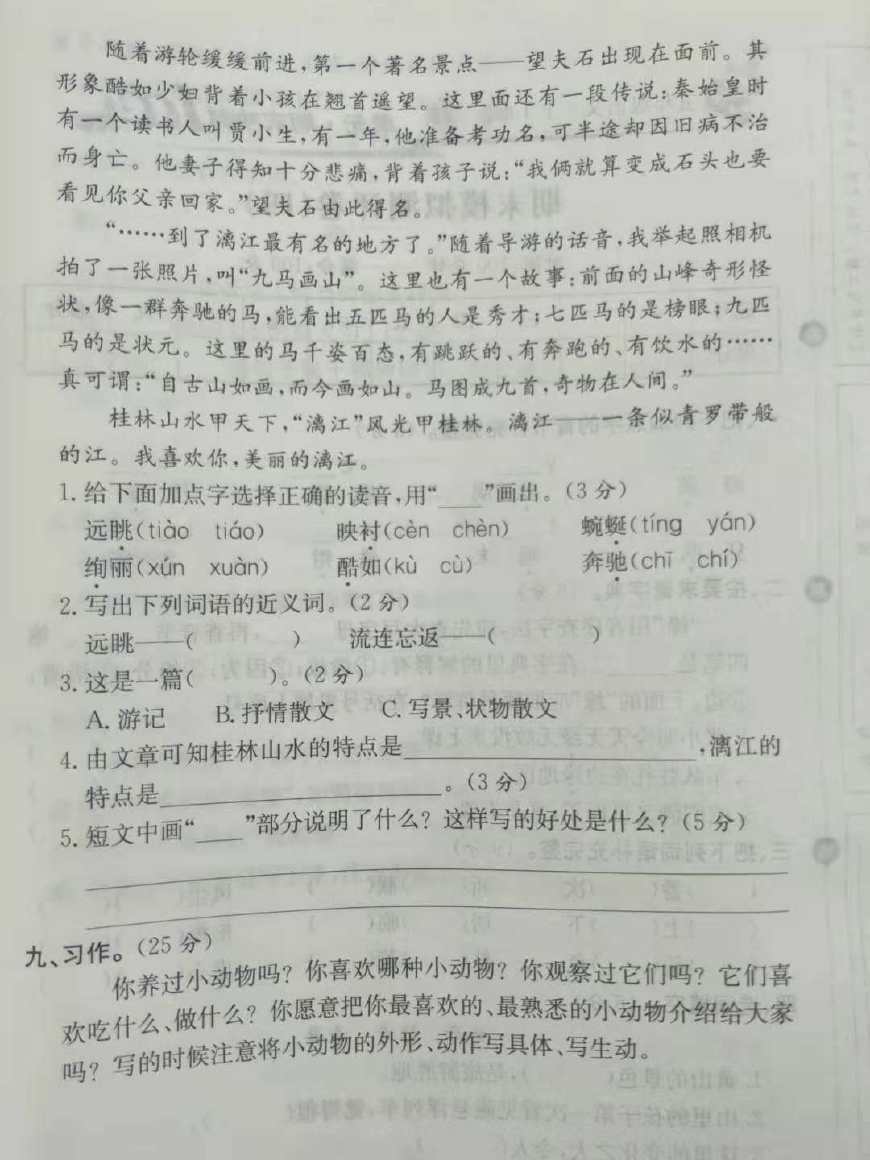 随着游轮缓缓前进，第一个著名景点——望夫石出现在面前。其
形象酷如少妇背着小孩在翘首遥望。这里面还有一段传说：秦始皇时
有一个读书人叫贾小生，有一年，他准备考功名，可半途却因旧病不治
而身亡。他妻子得知十分悲痛，背着孩子说：“我俩就算变成石头也要
看见你父亲回家。”望夫石由此得名。
“……到了漓江最有名的地方了。”随着导游的话音，我举起照相机
拍了一张照片，叫“九马画山”。这里也有一个故事：前面的山峰奇形怪
状，像一群奔驰的马，能看出五匹马的人是秀才；七匹马的是榜眼；九匹
马的是状元。这里的马千姿百态，有跳跃的、有奔跑的、有饮水的……
真可谓：“自古山如画，而今画如山。马图成九首，奇物在人间。”
桂林山水甲天下，“漓江”风光甲桂林。漓江——一条似青罗带般
的江。我喜欢你，美丽的漓江。
1. 给下面加点字选择正确的读音，用“____”画出。（3 分）
远眺（tiào tiáo） 映衬（cèn chèn） 蜿蜒（tíng yán）
绚丽（xún xuàn） 酷如（kù cù） 奔驰（chī chí）
2. 写出下列词语的近义词。（2 分）
远眺——（ ） 流连忘返——（ ）
3. 这是一篇（ ）。（2 分）
A. 游记 B. 抒情散文 C. 写景、状物散文
4. 由文章可知桂林山水的特点是____________________，漓江的
特点是____________________。（3 分）
5. 短文中画“____”部分说明了什么？这样写的好处是什么？（5 分）
九、习作。（25 分）
你养过小动物吗？你喜欢哪种小动物？你观察过它们吗？它们喜
欢吃什么、做什么？你愿意把你最喜欢的、最熟悉的小动物介绍给大家
吗？写的时候注意将小动物的外形、动作写具体、写生动。